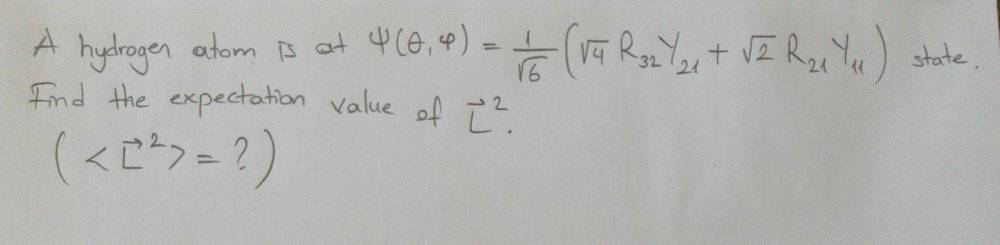 A hydrogen atom is at Ψ(θ,φ) = 1/√6 (√4 R₃₂Y₂₁ + √2 R₂₁Y₁₁) state.
Find the expectation value of L⃗².
(<L⃗²> = ?)